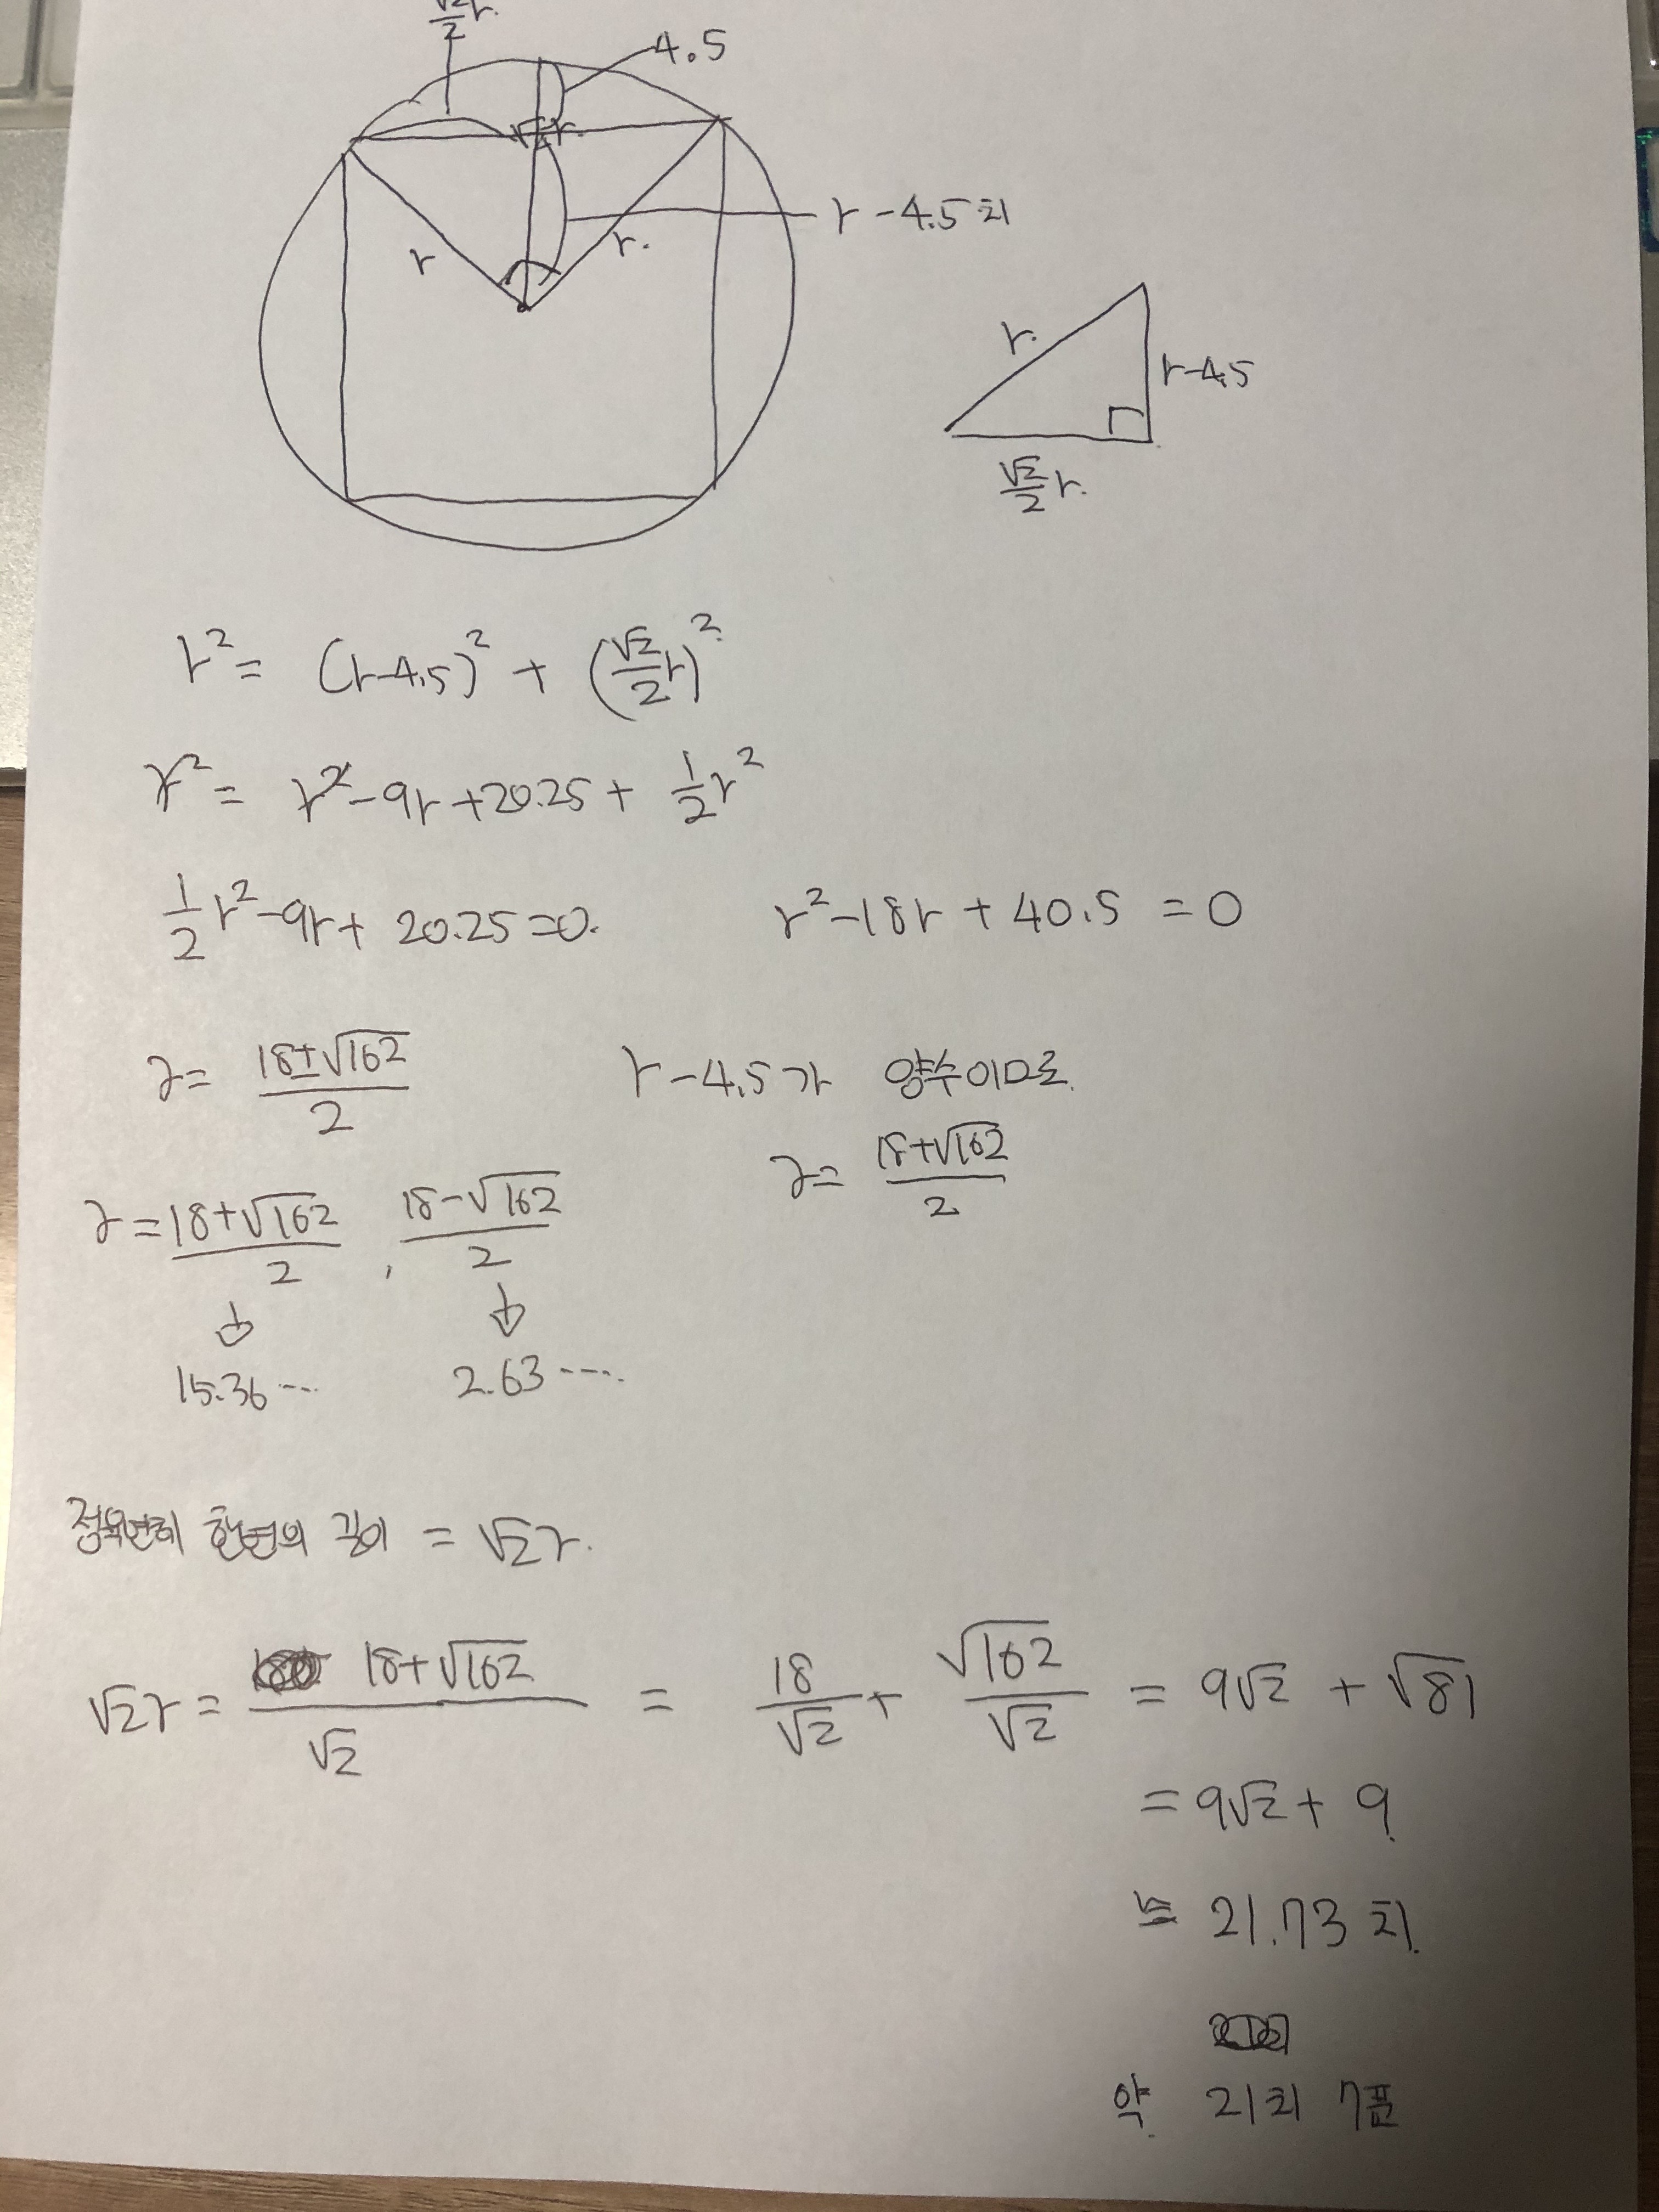 √2/2 r.
4.5
√2 r.
r - 4.5치
r
r.
r.
r-4.5
√2/2 r.
r² = (r-4.5)² + (√2/2 r)²
r² = r² - 9r + 20.25 + 1/2 r²
1/2 r² - 9r + 20.25 = 0.
r² - 18r + 40.5 = 0
r = (18±√162)/2
r - 4.5가 양수이므로
r = (18+√162)/2
r = (18+√162)/2 , (18-√162)/2
↓ ↓
15.36... 2.63....
한변의 길이 = √2 r.
√2 r = (18+√162)/√2 = 18/√2 + √162/√2 = 9√2 + √81
= 9√2 + 9
≒ 21.73 치.
약 21치 7푼